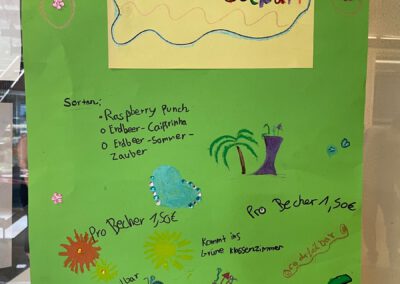 Sorten:
• Raspberry Punch
o Erdbeer-Caipirinha
o Erdbeer-Sommer-
Zauber
Pro Becher 1,50€
Pro Becher 1,50€
Kommt ins
Grüne Klassenzimmer